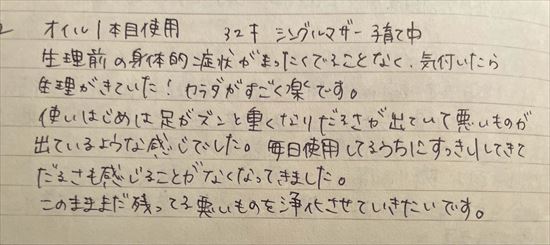 オイル1本目使用 32才 シングルマザー 子育て中
生理前の身体的症状がまったくでることなく、気付いたら
生理がきていた!カラダがすごく楽です。
使いはじめは足がズンと重くなりだるさが出ていて悪いものが
出ているような感じでした。毎日使用してるうちにすっきりしてきて
だるさも感じることがなくなってきました。
このまままだ残ってる悪いものを浄化させていきたいです。